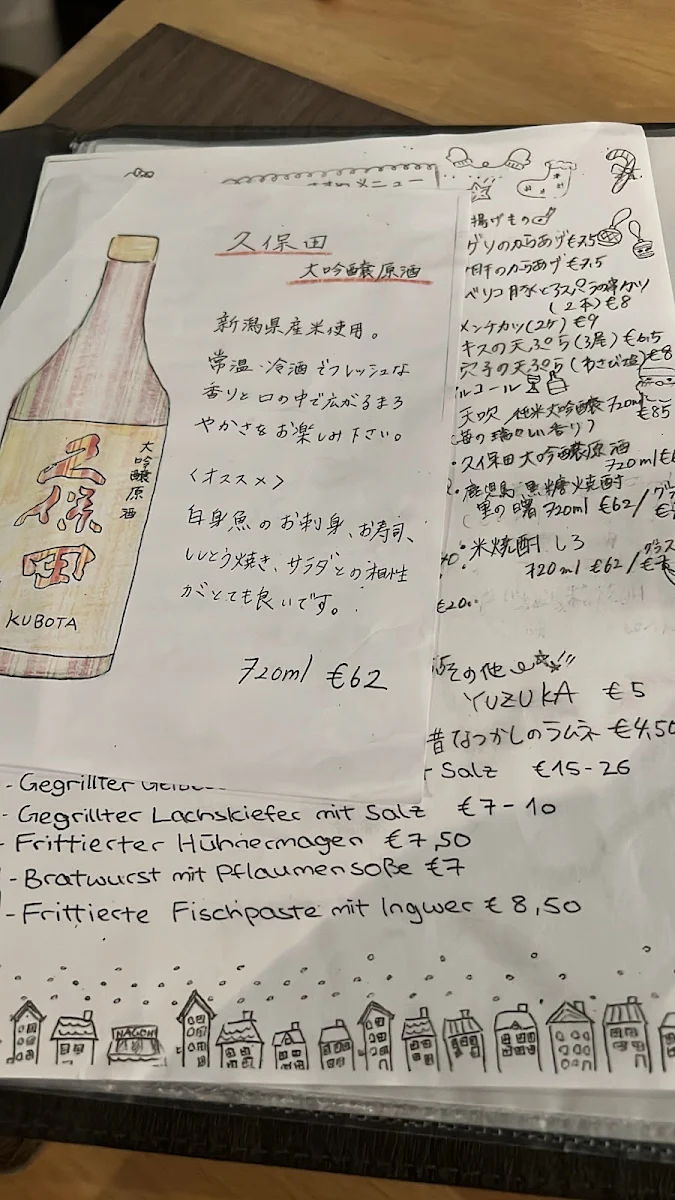 メニュー
久保田
大吟醸原酒
新潟県産米使用。
常温・冷酒でフレッシュな
香りと口の中で広がるまろ
やかさをお楽しみ下さい。
<オススメ>
白身魚のお刺身、お寿司、
しいとう焼き、サラダとの相性
がとても良いです。
720ml €62
久保田
大吟醸原酒
KUBOTA
揚げもの
のからあげ €7.5
のからあげ €7.5
(2本) €8
メンチカツ(2ケ) €9
キスの天ぷら(3尾) €6.5
穴子の天ぷら(わさび塩) €8
ルコール
天吹 純米大吟醸 720ml €85
・久保田大吟醸原酒
720ml
・鹿児島 黒糖焼酎
里の曙 720ml €62/グラス
・米焼酎 しろ
720ml €62/グラス
€20
その他
YUZUKA €5
昔なつかしのラムネ €4,50
Salz €15-26
- Gegrillter
- Gegrillter Lachskiefer mit Salz €7-10
- Frittierter Hühnermagen €7,50
- Bratwurst mit Pflaumensoße €7
- Frittierte Fischpaste mit Ingwer €8,50
NAGOMI